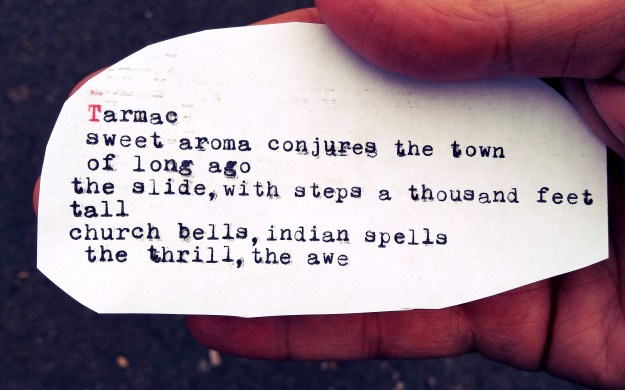 Tarmac
sweet aroma conjures the town
of long ago
the slide, with steps a thousand feet
tall
church bells, indian spells
the thrill, the awe